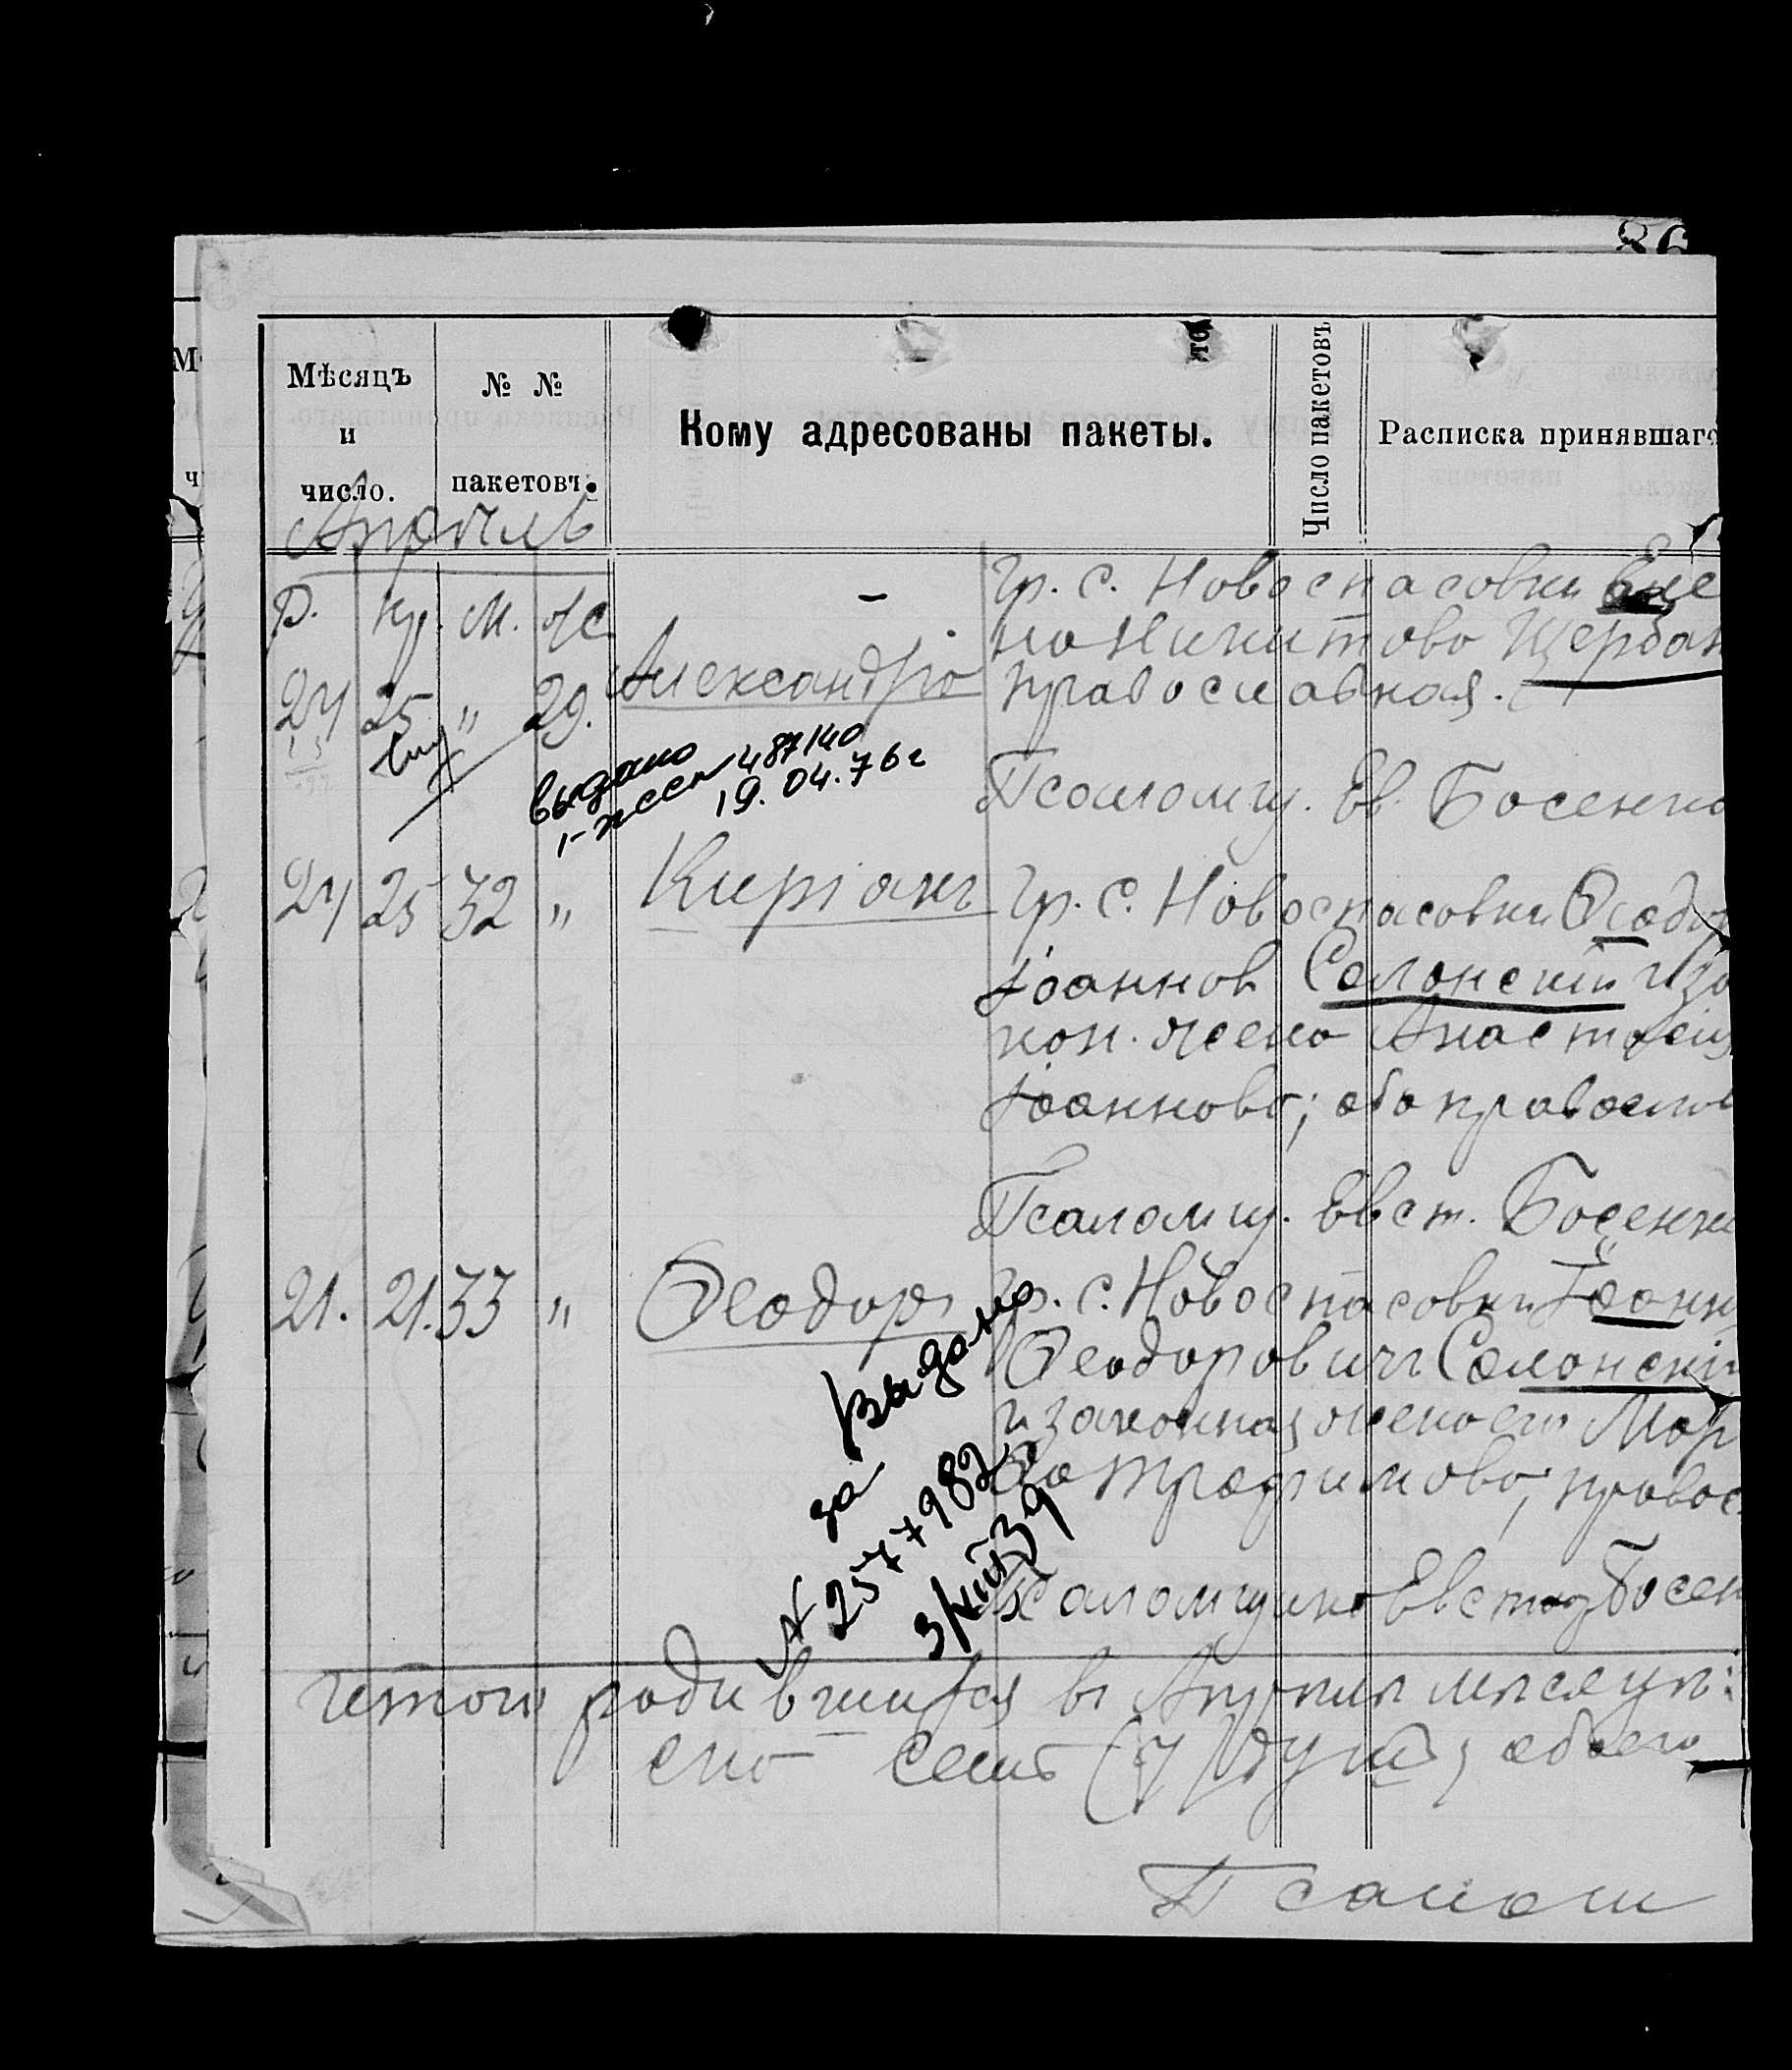 Мѣсяцъ
и
число.
№ №
пакетовъ.
Кому адресованы пакеты.
Число пакетовъ
Расписка принявшаго
Апрѣль
Р. Кр. М. Ж.
24 25 " 29. Александра
Гр. с. Новоспасовки
Никитова Щербак
православная.
выдано
487140
19.04.76г
Псаломщ. Ев. Босенко
24 25 32 " Киріакъ
Гр. с. Новоспасовки Ѳеодор
Іоаннов Солонскій и за
кон. жена Анастасія
Іоаннова; оба православ
Псаломщ. Евст. Босенко
21. 21. 33 " Ѳеодоръ
Гр. с. Новоспасовки Іоанн
Ѳеодоровичъ Солонскій
и законная жена его Мар
Трофимова, правос
выдано
за
№ 2577982
3/XII 39
Псаломщикъ Евстаф Босен
Итого родившихся въ Апрѣлѣ мѣсяцѣ:
семь (7) душъ, обоего
Псалом